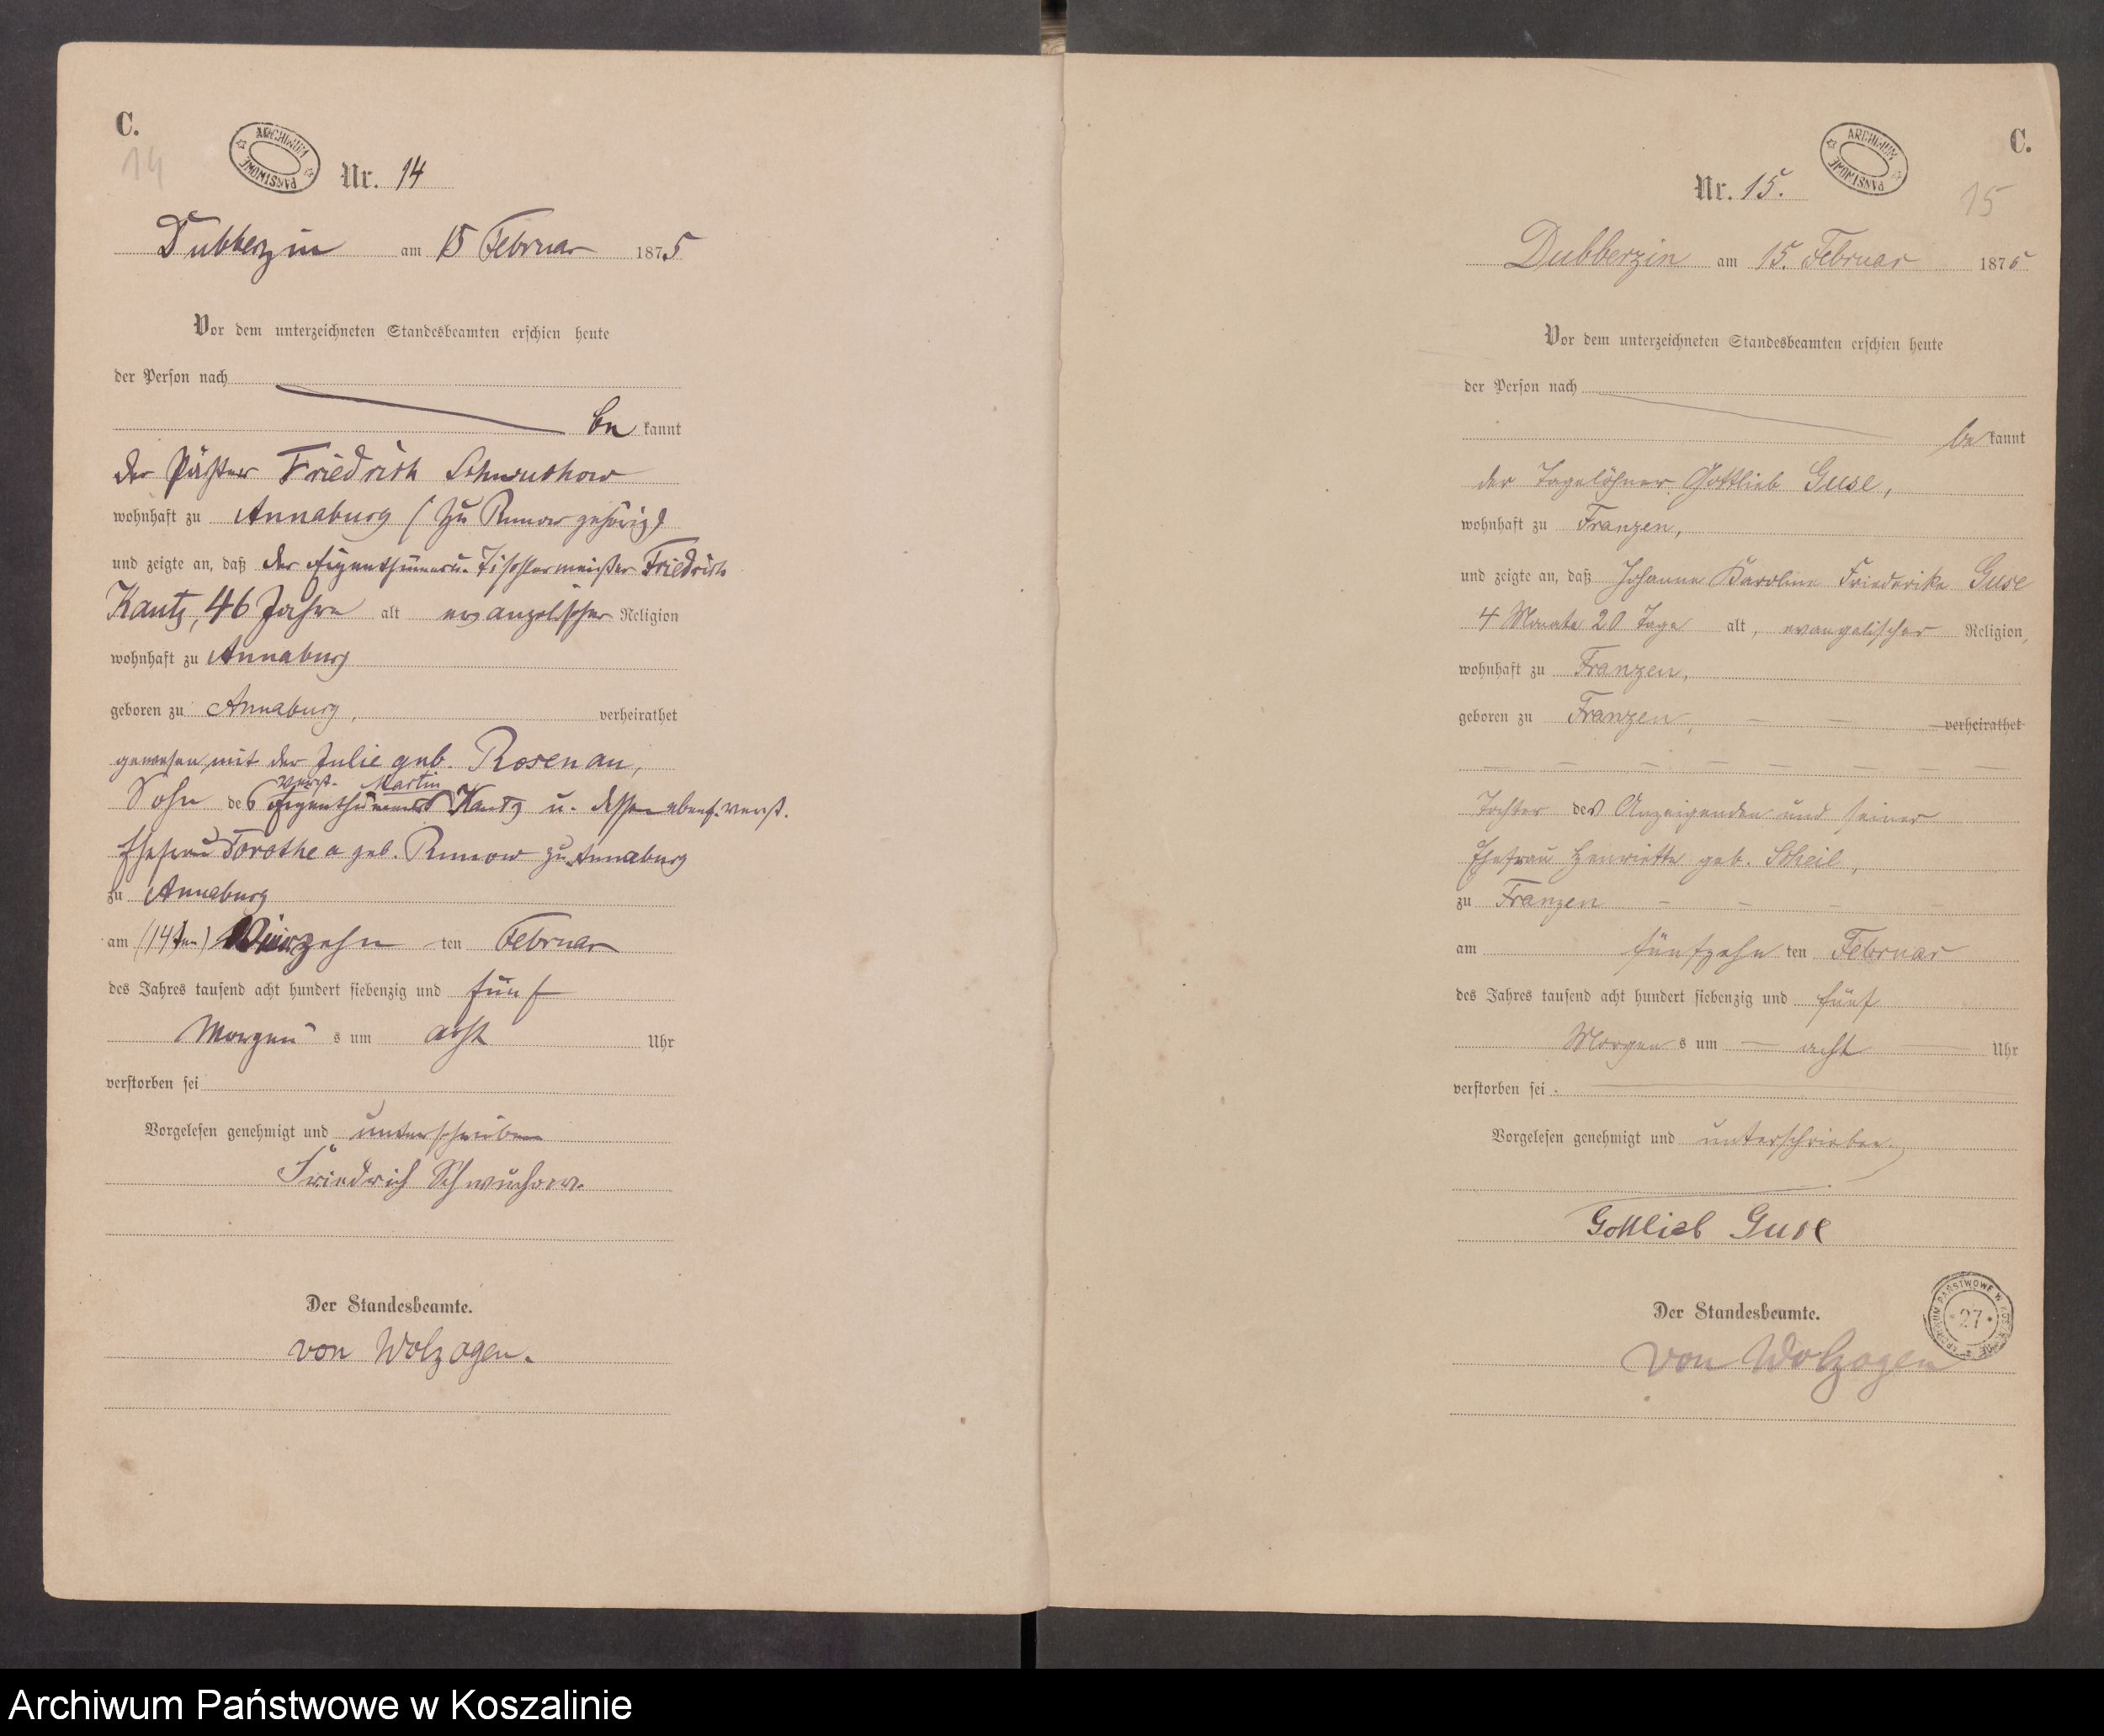 C.
14
ARCHIWUM PAŃSTWOWE
Nr. 14
Dubberzin am 15 Februar 1875
Vor dem unterzeichneten Standesbeamten erschien heute
der Person nach
be kannt
der Pächter Friedrich Schwuchow
wohnhaft zu Annaburg (zu Runow gehörig)
und zeigte an, daß der Eigenthümer u. Tischlermeister Friedrich
Kautz, 46 Jahre alt evangelischer Religion
wohnhaft zu Annaburg
geboren zu Annaburg, verheirathet
gewesen mit der Julie geb. Rosenau,
verst. Martin
Sohn des Eigenthümers Kautz u. dessen ebenf. verst.
Ehefrau Dorothea geb. Runow zu Annaburg
zu Annaburg
am (14ten) Vierzehn ten Februar
des Jahres tausend acht hundert siebenzig und fünf
Morgens um acht Uhr
verstorben sei
Vorgelesen genehmigt und unterschrieben
Friedrich Schwuchow.
Der Standesbeamte.
von Wolzogen.
C.
15
ARCHIWUM PAŃSTWOWE
Nr. 15.
Dubberzin am 15. Februar 1875
Vor dem unterzeichneten Standesbeamten erschien heute
der Person nach
be kannt
der Tagelöhner Gottlieb Guse,
wohnhaft zu Franzen,
und zeigte an, daß Johanna Karoline Friederike Guse
4 Monate 20 Tage alt, evangelischer Religion,
wohnhaft zu Franzen,
geboren zu Franzen, — — verheirathet
— — — — — — —
Tochter des Anzeigenden und seiner
Ehefrau Henriette geb. Scheil,
zu Franzen — — — —
am fünfzehn ten Februar
des Jahres tausend acht hundert siebenzig und fünf
Morgens um — acht — Uhr
verstorben sei.
Vorgelesen genehmigt und unterschrieben.
Gottlieb Guse
Der Standesbeamte.
von Wolzogen
27
Archiwum Państwowe w Koszalinie